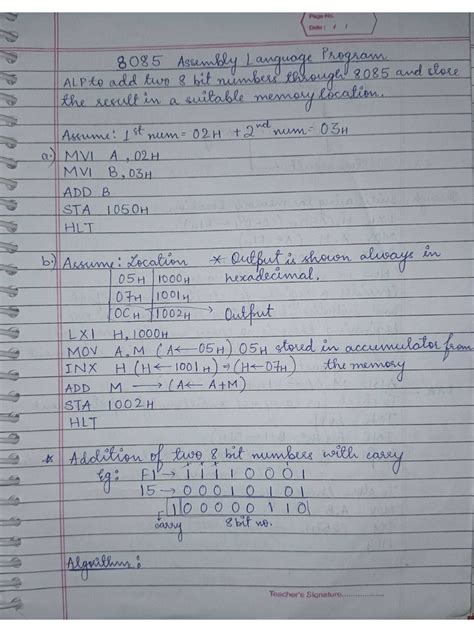 Page No.
Date: / /
8085 Assembly Language Program
ALP to add two 8 bit numbers through 8085 and store
the result in a suitable memory location.
Assume: 1st num = 02H + 2nd num = 03H
a.) MVI A, 02H
MVI B, 03H
ADD B
STA 1050H
HLT
b.) Assume: Location * Output is shown always in
05H 1000H hexadecimal.
07H 1001H
0CH 1002H → Output
LXI H, 1000H
MOV A, M (A ← 05H) 05H stored in accumulator from
INX H (H ← 1001H) → (H ← 07H) the memory
ADD M → (A ← A+M)
STA 1002H
HLT
* Addition of two 8 bit numbers with carry
Eg: F1 → 1 1 1 1 0 0 0 1
15 → 0 0 0 1 0 1 0 1
1 0 0 0 0 0 1 1 0
carry 8 bit no.
Algorithm:
Teacher's Signature